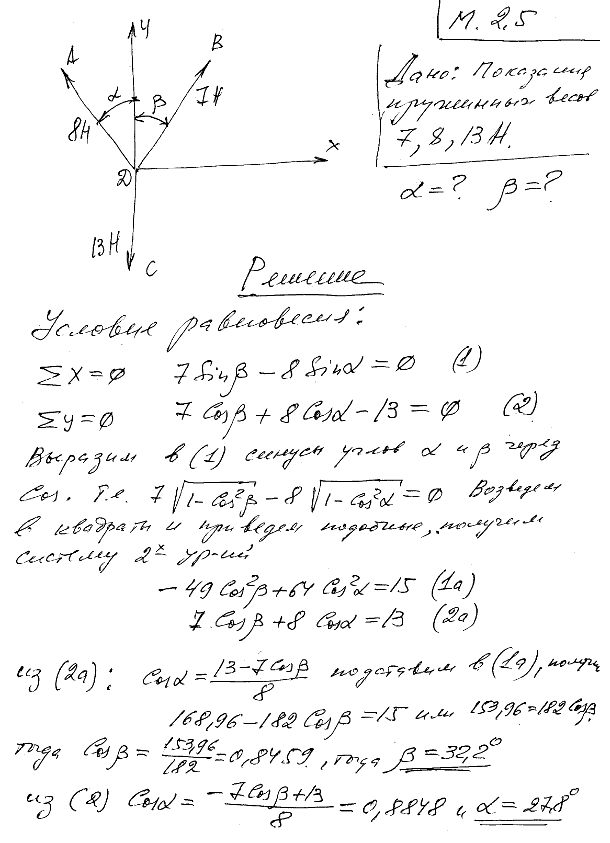 М. 2,5
Дано: Показания
пружинных весов
7, 8, 13 Н.
α = ? β = ?
У
А
В
α
β
8Н
7Н
Х
Д
13Н
С
Решение
Условие равновесия:
ΣX = ∅ 7 Sinβ − 8 Sinα = ∅ (1)
Σy = ∅ 7 Cosβ + 8 Cosα − 13 = ∅ (2)
Выразим в (1) синусы углов α и β через
Cos. Т.е. 7 √(1−Cos²β) − 8 √(1−Cos²α) = ∅ Возведем
в квадрат и приведем подобные, получим
систему 2ˣ ур-ий
− 49 Cos²β + 64 Cos²α = 15 (1а)
7 Cosβ + 8 Cosα = 13 (2а)
из (2а): Cosα = (13 − 7Cosβ)/8 подставим в (1а), получи
168,96 − 182 Cosβ = 15 или 153,96 = 182 Cosβ.
тогда Cosβ = 153,96/182 = 0,8459, тогда β = 32,2°
из (2) Cosα = (−7Cosβ + 13)/8 = 0,8848 и α = 27,8°